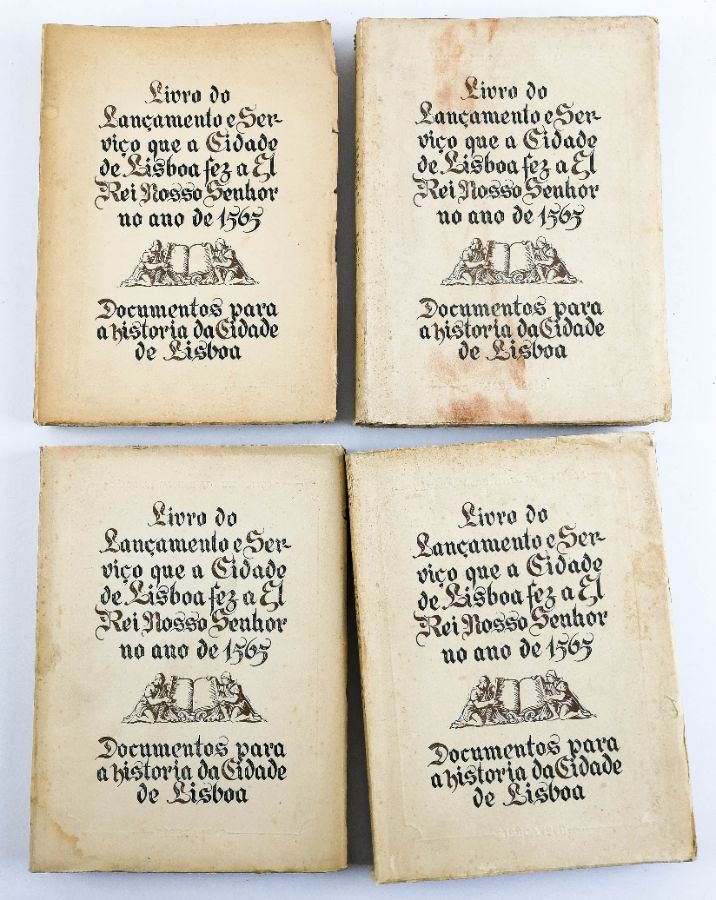 Livro do
Lançamento e Ser-
viço que a Cidade
de Lisboa fez a El
Rei Nosso Senhor
no ano de 1565
Documentos para
a historia da Cidade
de Lisboa
Livro do
Lançamento e Ser-
viço que a Cidade
de Lisboa fez a El
Rei Nosso Senhor
no ano de 1565
Documentos para
a historia da Cidade
de Lisboa
Livro do
Lançamento e Ser-
viço que a Cidade
de Lisboa fez a El
Rei Nosso Senhor
no ano de 1565
Documentos para
a historia da Cidade
de Lisboa
Livro do
Lançamento e Ser-
viço que a Cidade
de Lisboa fez a El
Rei Nosso Senhor
no ano de 1565
Documentos para
a historia da Cidade
de Lisboa